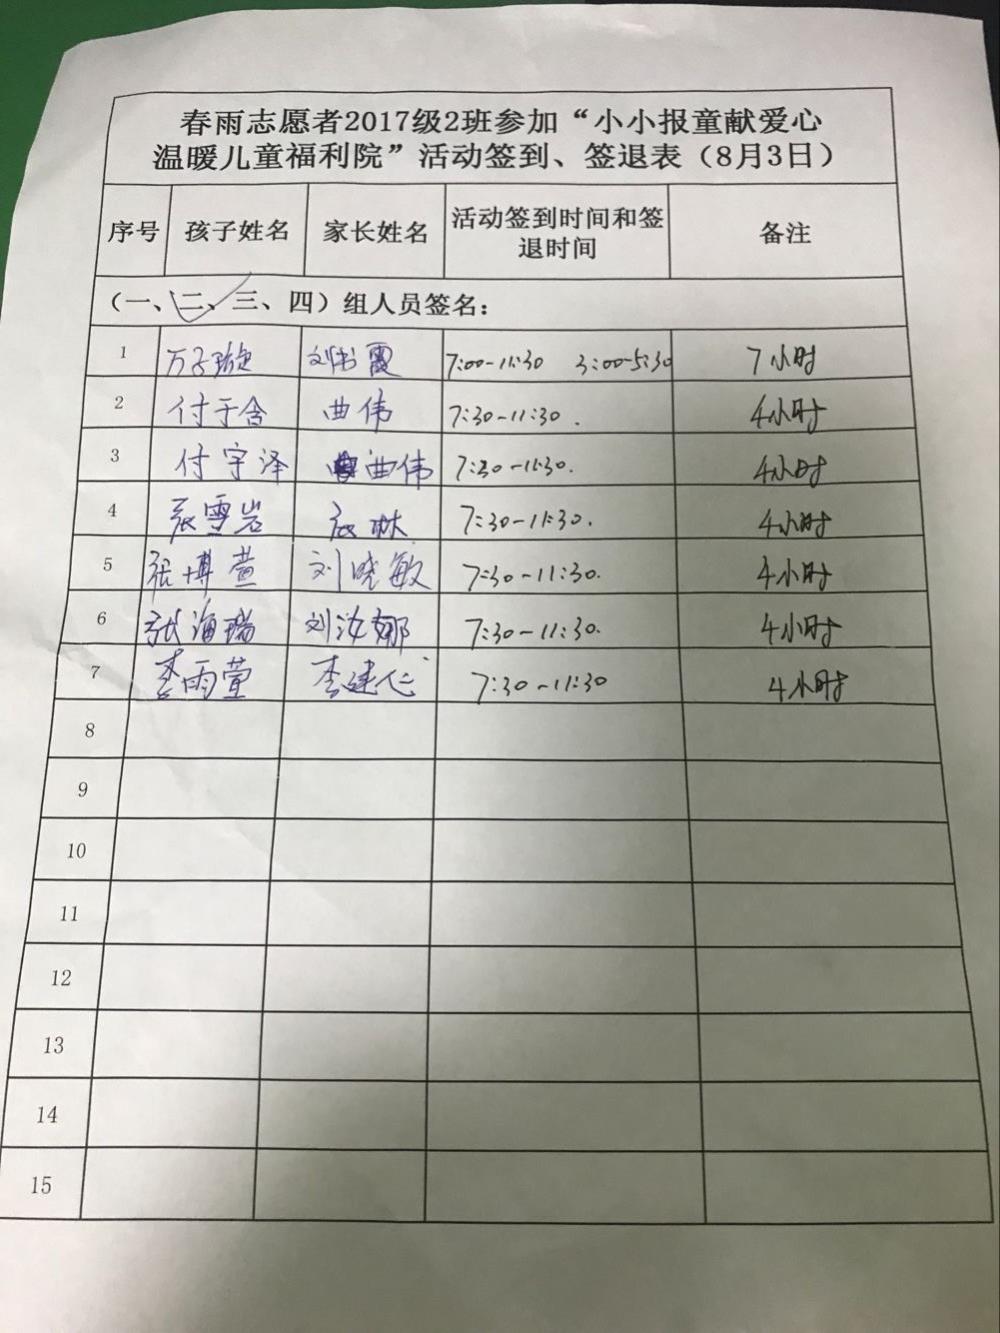 春雨志愿者2017级2班参加“小小报童献爱心
温暖儿童福利院”活动签到、签退表（8月3日）
序号 孩子姓名 家长姓名 活动签到时间和签退时间 备注
（一、二、三、四）组人员签名：
1 万子璇 刘书霞 7:00-11:30 3:00-5:30 7小时
2 付于含 曲伟 7:30-11:30. 4小时
3 付宇泽 曲伟 7:30-11:30. 4小时
4 张雪岩 7:30-11:30. 4小时
5 张博萱 刘晓敏 7:30-11:30. 4小时
6 张海瑞 刘汝娜 7:30-11:30. 4小时
7 李雨萱 李建仁 7:30-11:30 4小时
8
9
10
11
12
13
14
15